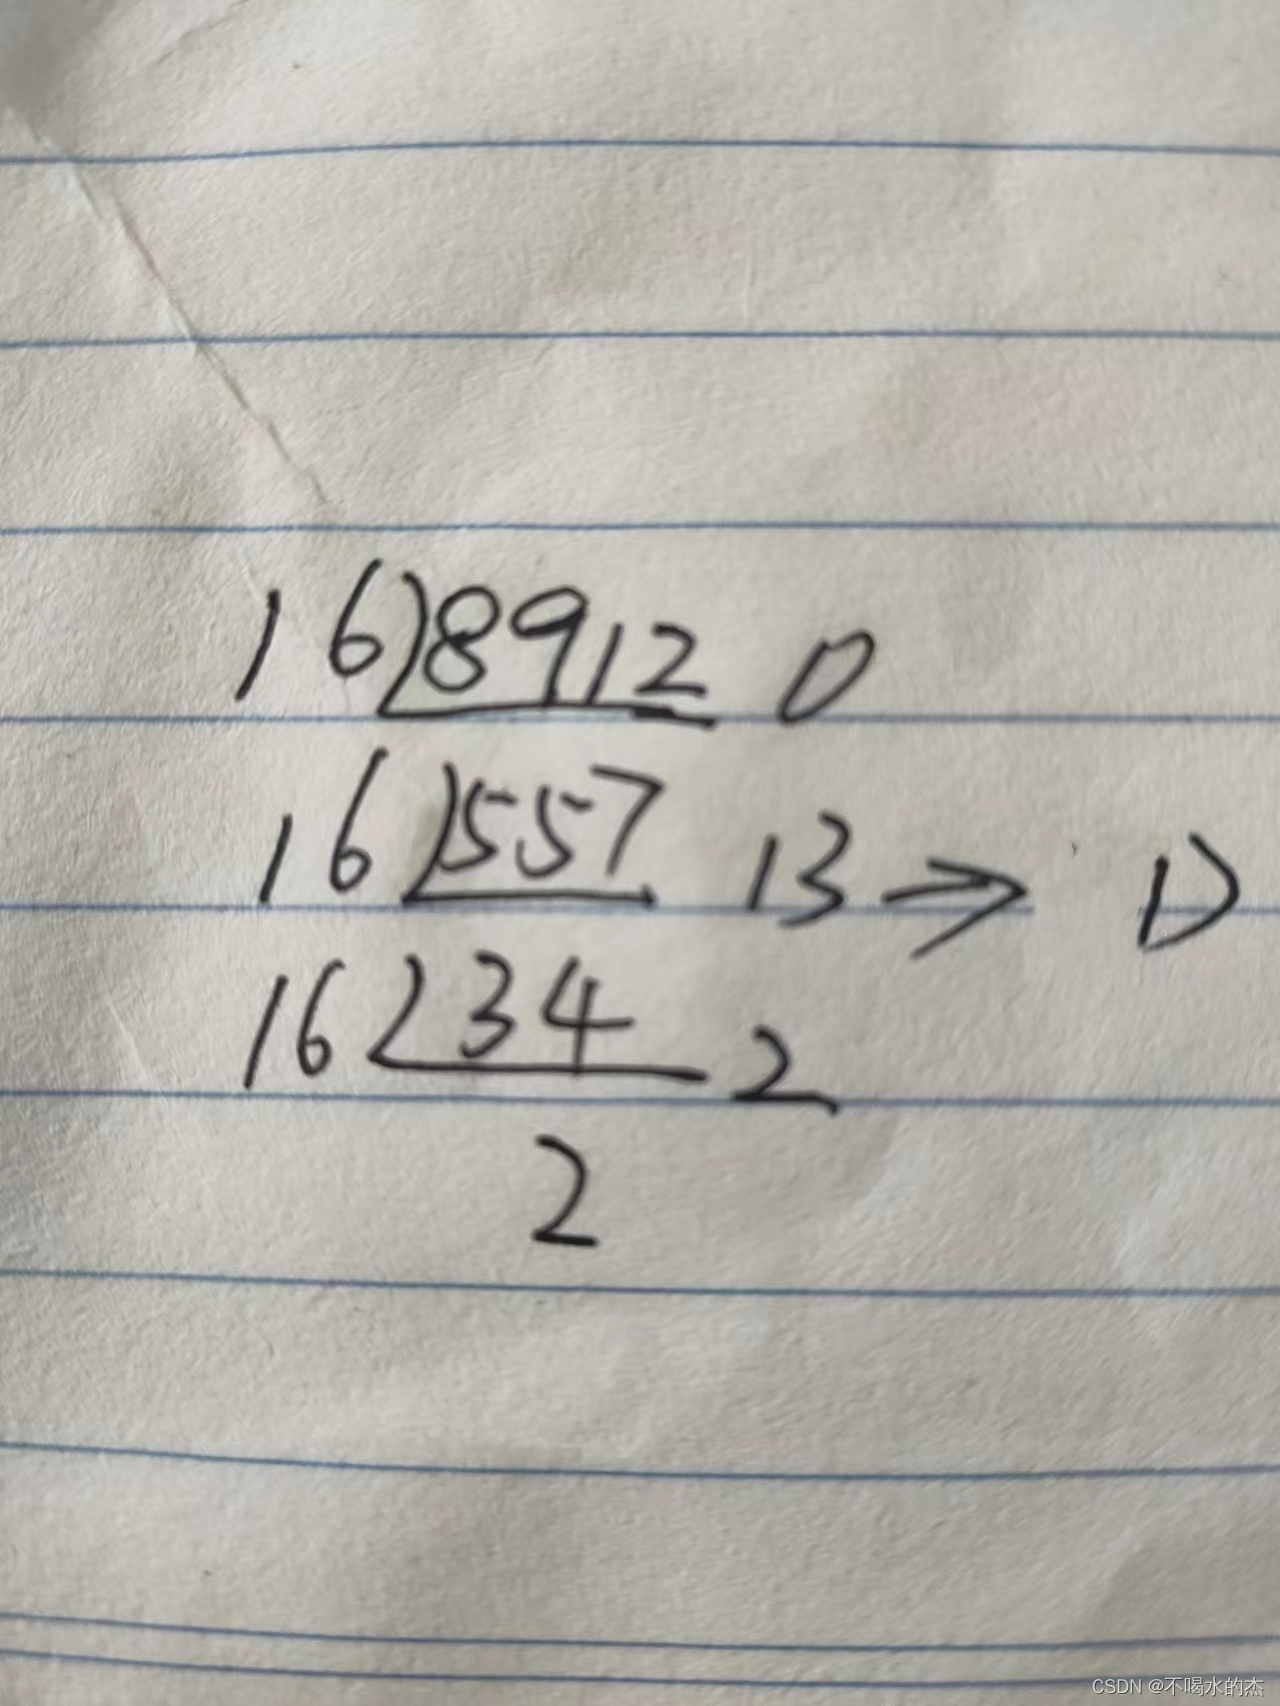 16)8912 0
16)557 13→ D
16)34 2
2
CSDN @不喝水的杰